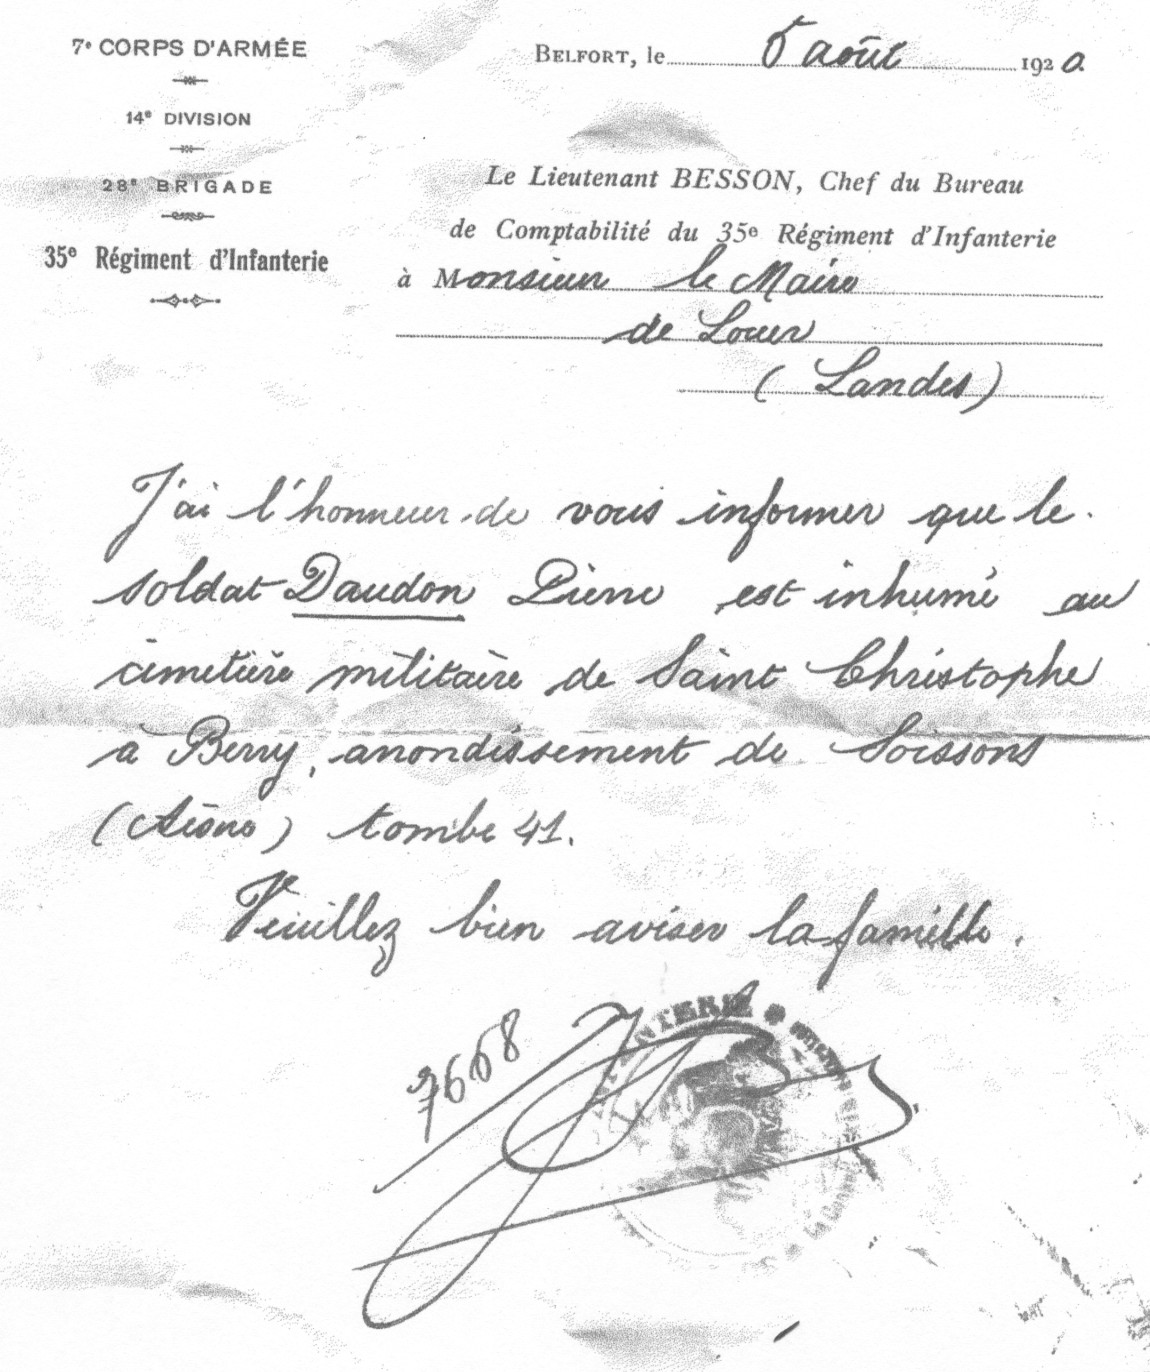 7e CORPS D'ARMÉE
14e DIVISION
28e BRIGADE
35e Régiment d'Infanterie
BELFORT, le 5 août 1920.
Le Lieutenant BESSON, Chef du Bureau
de Comptabilité du 35e Régiment d'Infanterie
à Monsieur le Maire
de Louer
(Landes)
J'ai l'honneur de vous informer que le
soldat Daudon Pierre est inhumé au
cimetière militaire de Saint Christophe
à Berry, arrondissement de Soissons
(Aisne) tombe 41.
Veuillez bien aviser la famille.
7668